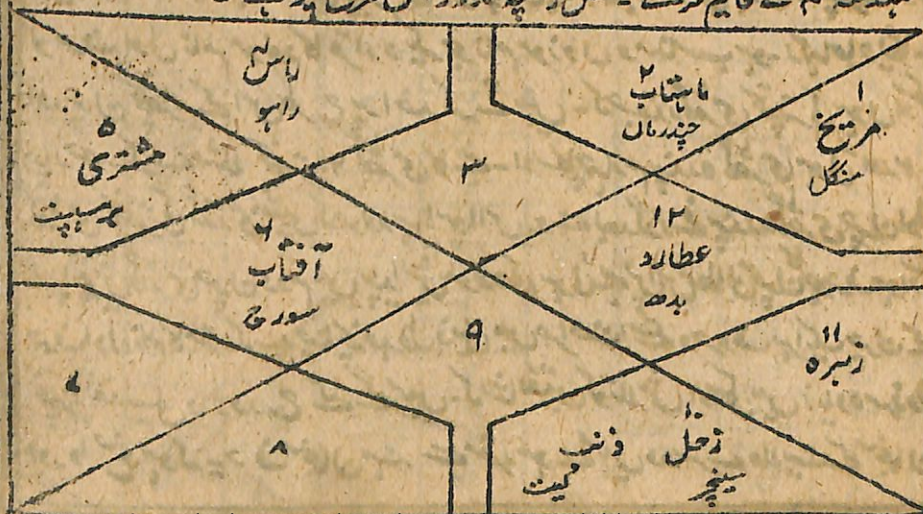 ۴
راس
راہو
۲
ماہتاب
چندرماں
۱
مریخ
منگل
۵
مشتری
برسپت
۳
۶
آفتاب
سورج
۱۲
عطارد
بدھ
۹
۱۱
زہرہ
۷
۸
۱۰
زحل ذنب
سینچر کیت